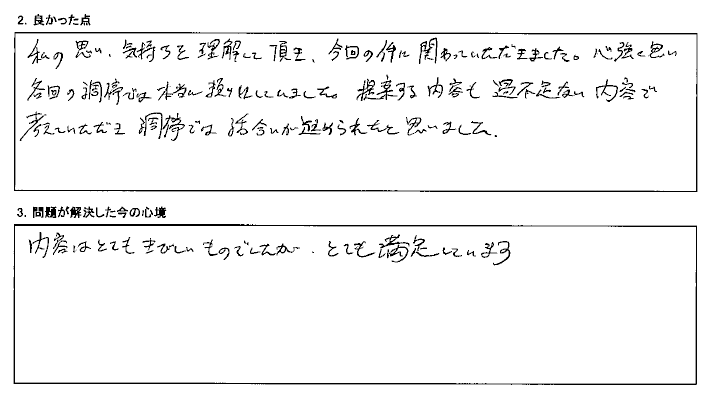 2. 良かった点
私の思い、気持ちを理解して頂き、今回の件に関わっていただきました。心強く思い
各回の調停では本当に頼りにしていました。提案する内容も過不足ない内容で
考えていただき調停では話合いが進められたと思いました。
3. 問題が解決した今の心境
内容はとてもきびしいものでしたが、とても満足しています